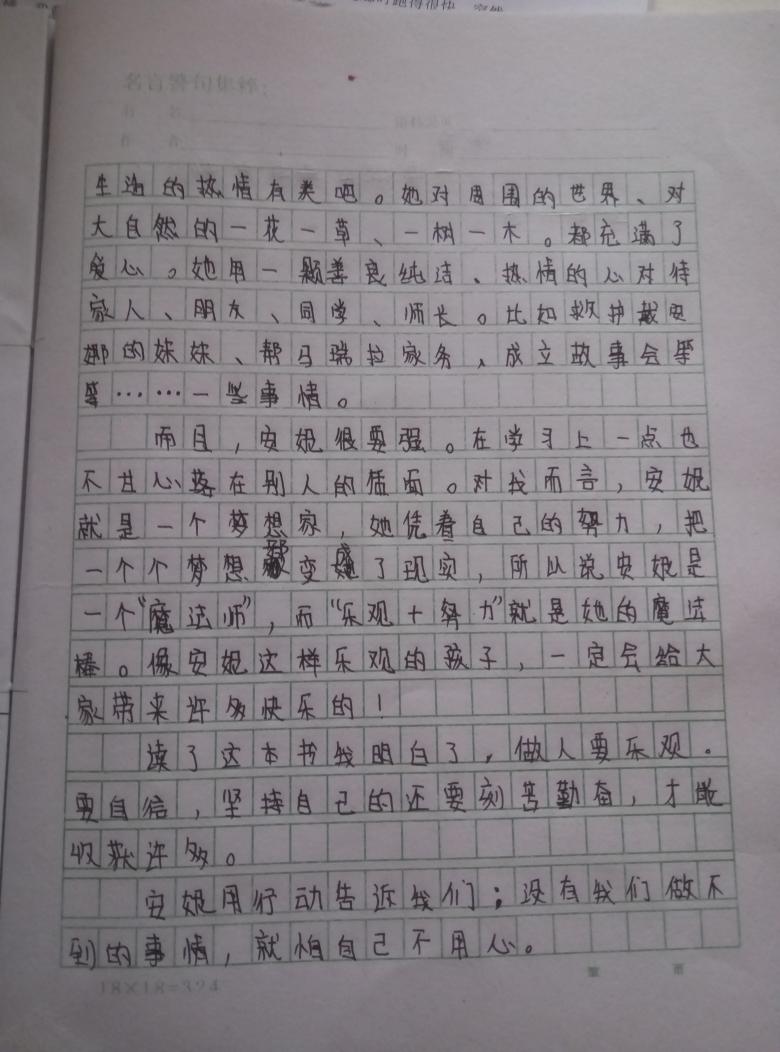 名言警句集粹：
生活的热情有关吧。她对周围的世界、对
大自然的一花一草、一树一木。都充满了
爱心。她用一颗善良纯洁、热情的心对待
家人、朋友、同学、师长。比如救护戴安
娜的妹妹、帮马瑞拉家务，成立故事会等
等……一些事情。
而且，安妮很要强。在学习上一点也
不甘心落在别人的后面。对我而言，安妮
就是一个梦想家，她凭着自己的努力，把
一个个梦想都变成了现实，所以说安妮是
一个“魔法师”，而“乐观＋努力”就是她的魔法
棒。像安妮这样乐观的孩子，一定会给大
家带来许多快乐的！
读了这本书我明白了，做人要乐观。
要自信，坚持自己的还要刻苦勤奋，才能
收获许多。
安妮用行动告诉我们；没有我们做不
到的事情，就怕自己不用心。
18×18=324
第 页